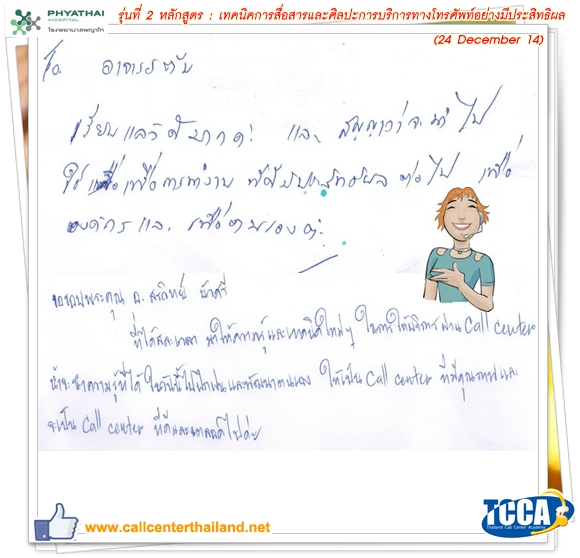 PHYATHAI
HOSPITAL
โรงพยาบาลพญาไท
รุ่นที่ 2 หลักสูตร : เทคนิคการสื่อสารและศิลปะการบริการทางโทรศัพท์อย่างมีประสิทธิผล
(24 December 14)
To. อาจารย์
เรียนแล้วดีมากค่ะ และ สัญญาว่าจะนำไป
ใช้ เพื่อการทำงาน ต่อไป เพื่อ
องค์กรและ เพื่อตนเองค่ะ
ขอขอบพระคุณ อ.
ที่ได้สละเวลา มาให้ความรู้และเทคนิคใหม่ๆ ในการให้บริการผ่าน Call center
ข้าจะนำความรู้ที่ได้ ในวันนี้ไปฝึกฝนและพัฒนาตนเอง ให้เป็น Call center ที่มีคุณภาพและ
จะเป็น Call center ที่ดีและ ไปค่ะ
www.callcenterthailand.net
TCCA
Thailand Call Center Academy